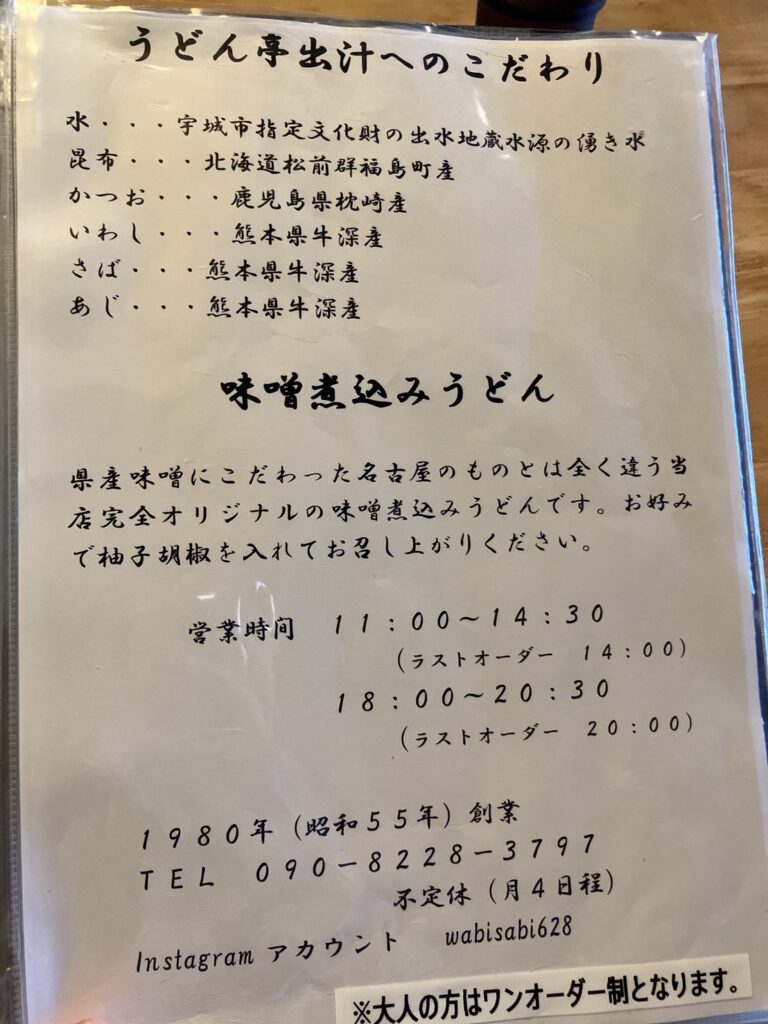 うどん亭出汁へのこだわり
水・・・宇城市指定文化財の出水地蔵水源の湧き水
昆布・・・北海道松前群福島町産
かつお・・・鹿児島県枕崎産
いわし・・・熊本県牛深産
さば・・・熊本県牛深産
あじ・・・熊本県牛深産
味噌煮込みうどん
県産味噌にこだわった名古屋のものとは全く違う当
店完全オリジナルの味噌煮込みうどんです。お好み
で柚子胡椒を入れてお召し上がりください。
営業時間 11:00～14:30
(ラストオーダー 14:00)
18:00～20:30
(ラストオーダー 20:00)
1980年(昭和55年)創業
TEL 090-8228-3797
不定休(月4日程)
Instagram アカウント wabisabi628
※大人の方はワンオーダー制となります。